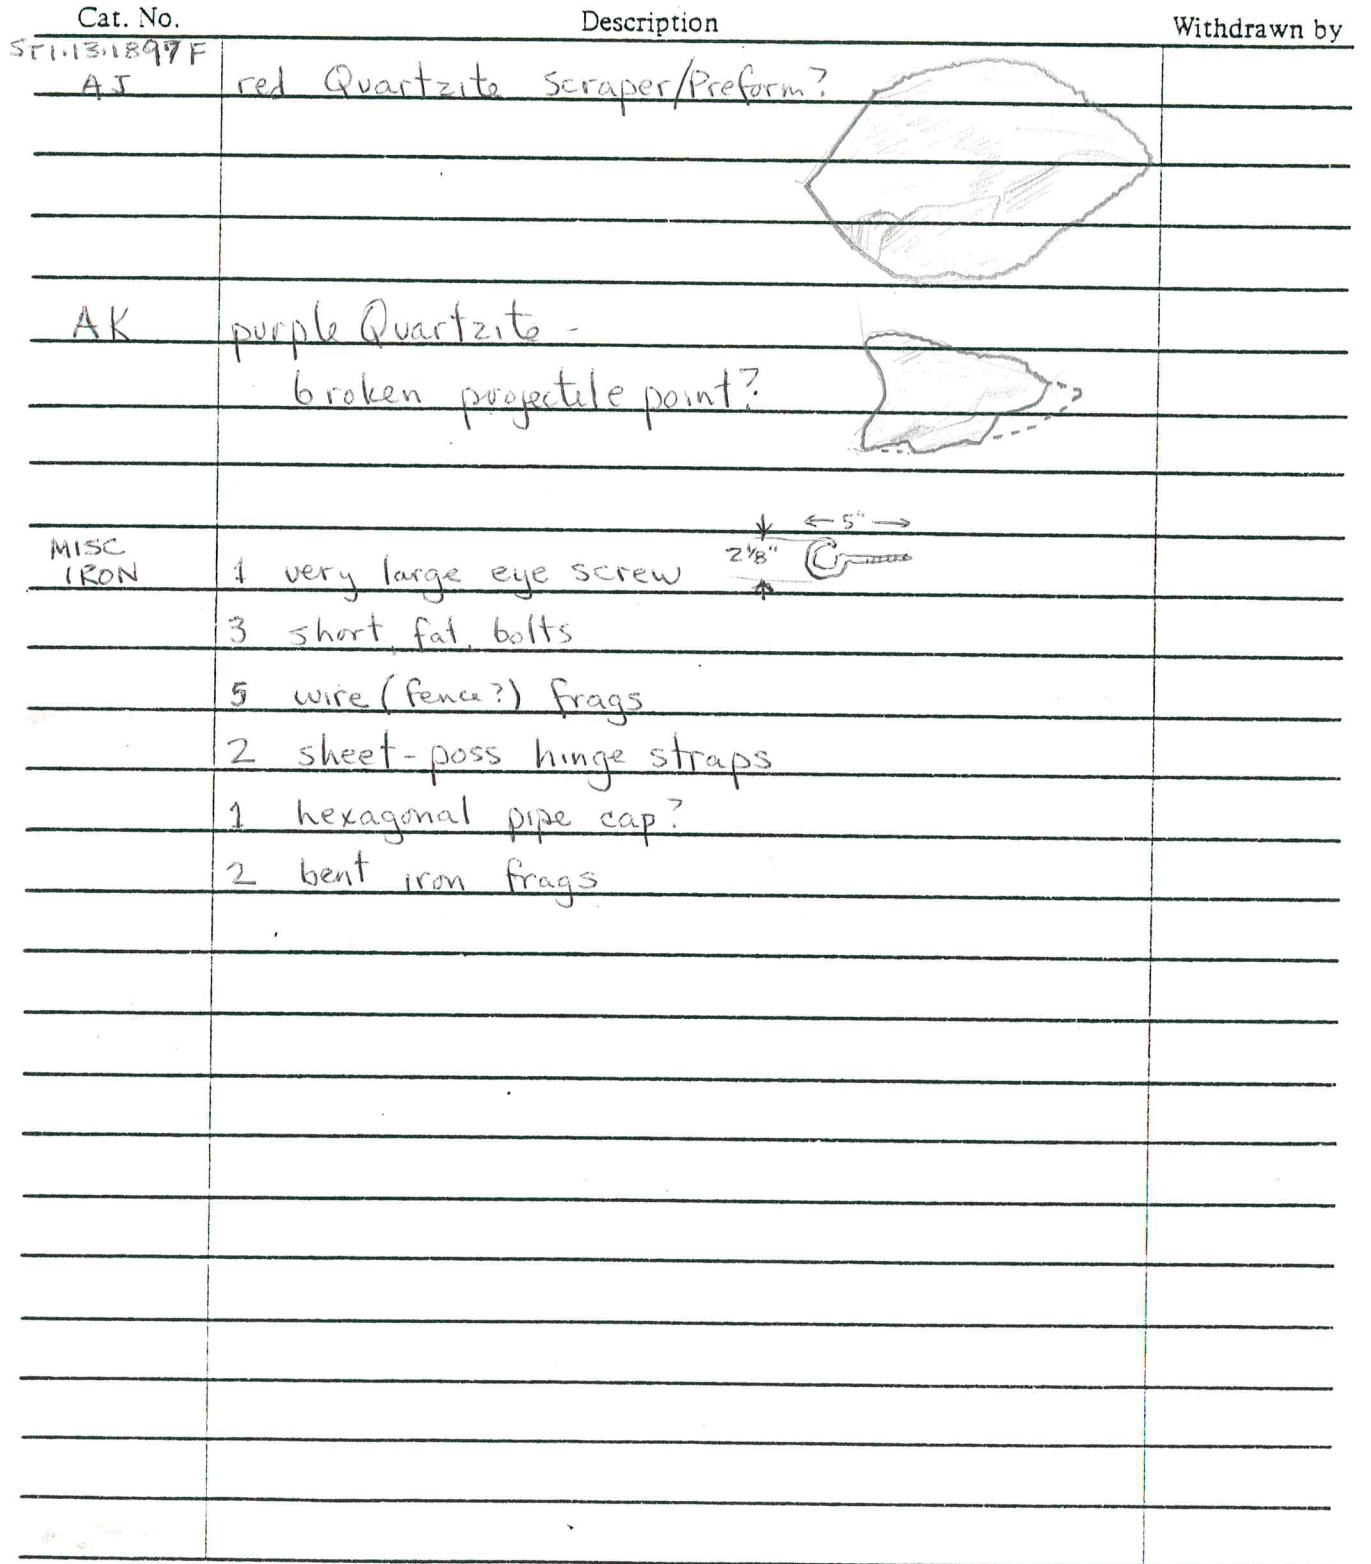 Cat. No. Description Withdrawn by
ST1.13.1897F
AJ red Quartzite scraper/Preform?
AK purple Quartzite -
broken projectile point?
← 5" →
2 1/8"
MISC
IRON 1 very large eye screw
3 short, fat, bolts
5 wire (fence?) frags
2 sheet-poss hinge straps
1 hexagonal pipe cap?
2 bent iron frags